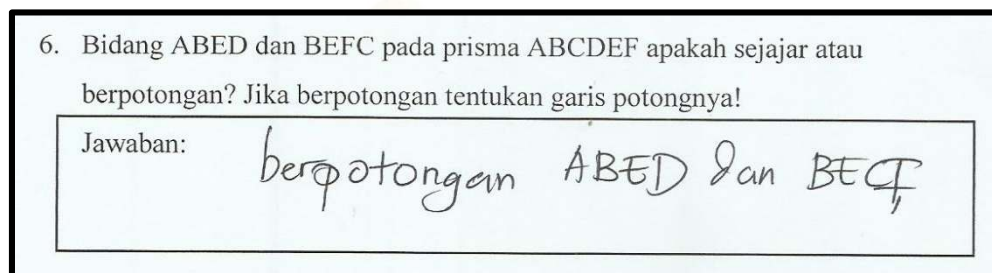 6. Bidang ABED dan BEFC pada prisma ABCDEF apakah sejajar atau
berpotongan? Jika berpotongan tentukan garis potongnya!
Jawaban:
berpotongan ABED dan